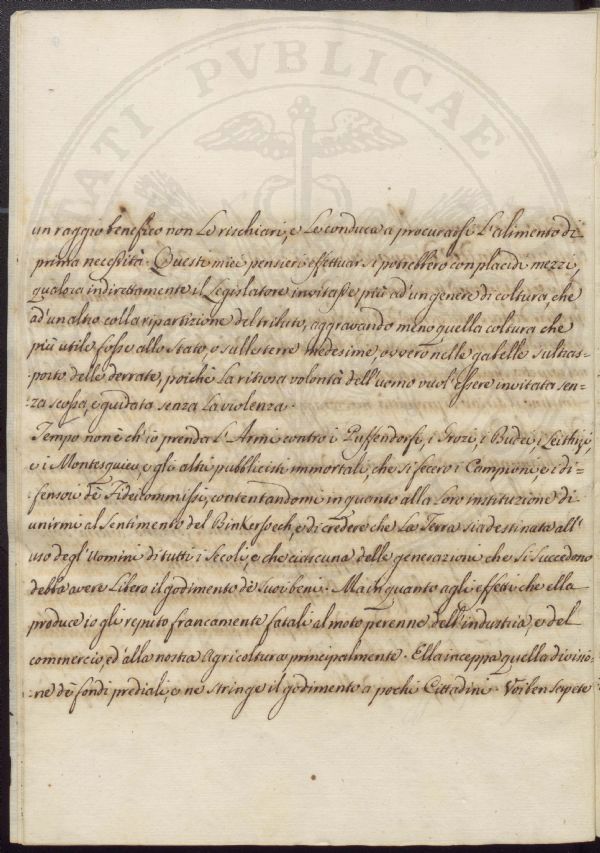 TATI PVBLICAE
un raggio benefico non Le rischiari, e Le conduca a procurarsi L'alimento di
prima necessità. Questi miei pensieri effettuar si potrebbero con placidi mezzi,
qualora indirettamente il Legislatore invitasse più ad un genere di coltura, che
ad un altro colla ripartizione del tributo, aggravando meno quella coltura che
più utile fosse allo stato, o sulle terre medesime, ovvero nelle gabelle sul tras=
porto delle derrate, poichè La ritrosa volontà dell'uomo vuol'essere invitata sen=
za scossa, e guidata senza La violenza.
Tempo non è ch'io prenda L'Armi contro i Puffendorfi, i Grozi, i Budei, i Leithizi,
e i Montesquieu, e gli altri pubblicisti immortali, che si fecero i Campioni, e i di=
fensori dè Fidecommissi, contentandomi in quanto alla Loro instituzione di
unirmi al Sentimento del Binkersoech, e di credere che La Terra sia destinata all'
uso degl'Uomini di tutti i Secoli, e che ciascuna delle generazioni che si succedono
debba avere Libero il godimento dè suoi beni. Ma in quanto agli effetti che ella
produce io gli reputo francamente fatali al moto perenne dell'industria, e del
commercio, ed alla nostra Agricoltura principalmente. Ella inceppa quella divisio=
ne dè fondi prediali, e ne stringe il godimento a pochi Cittadini. Voi ben sapete